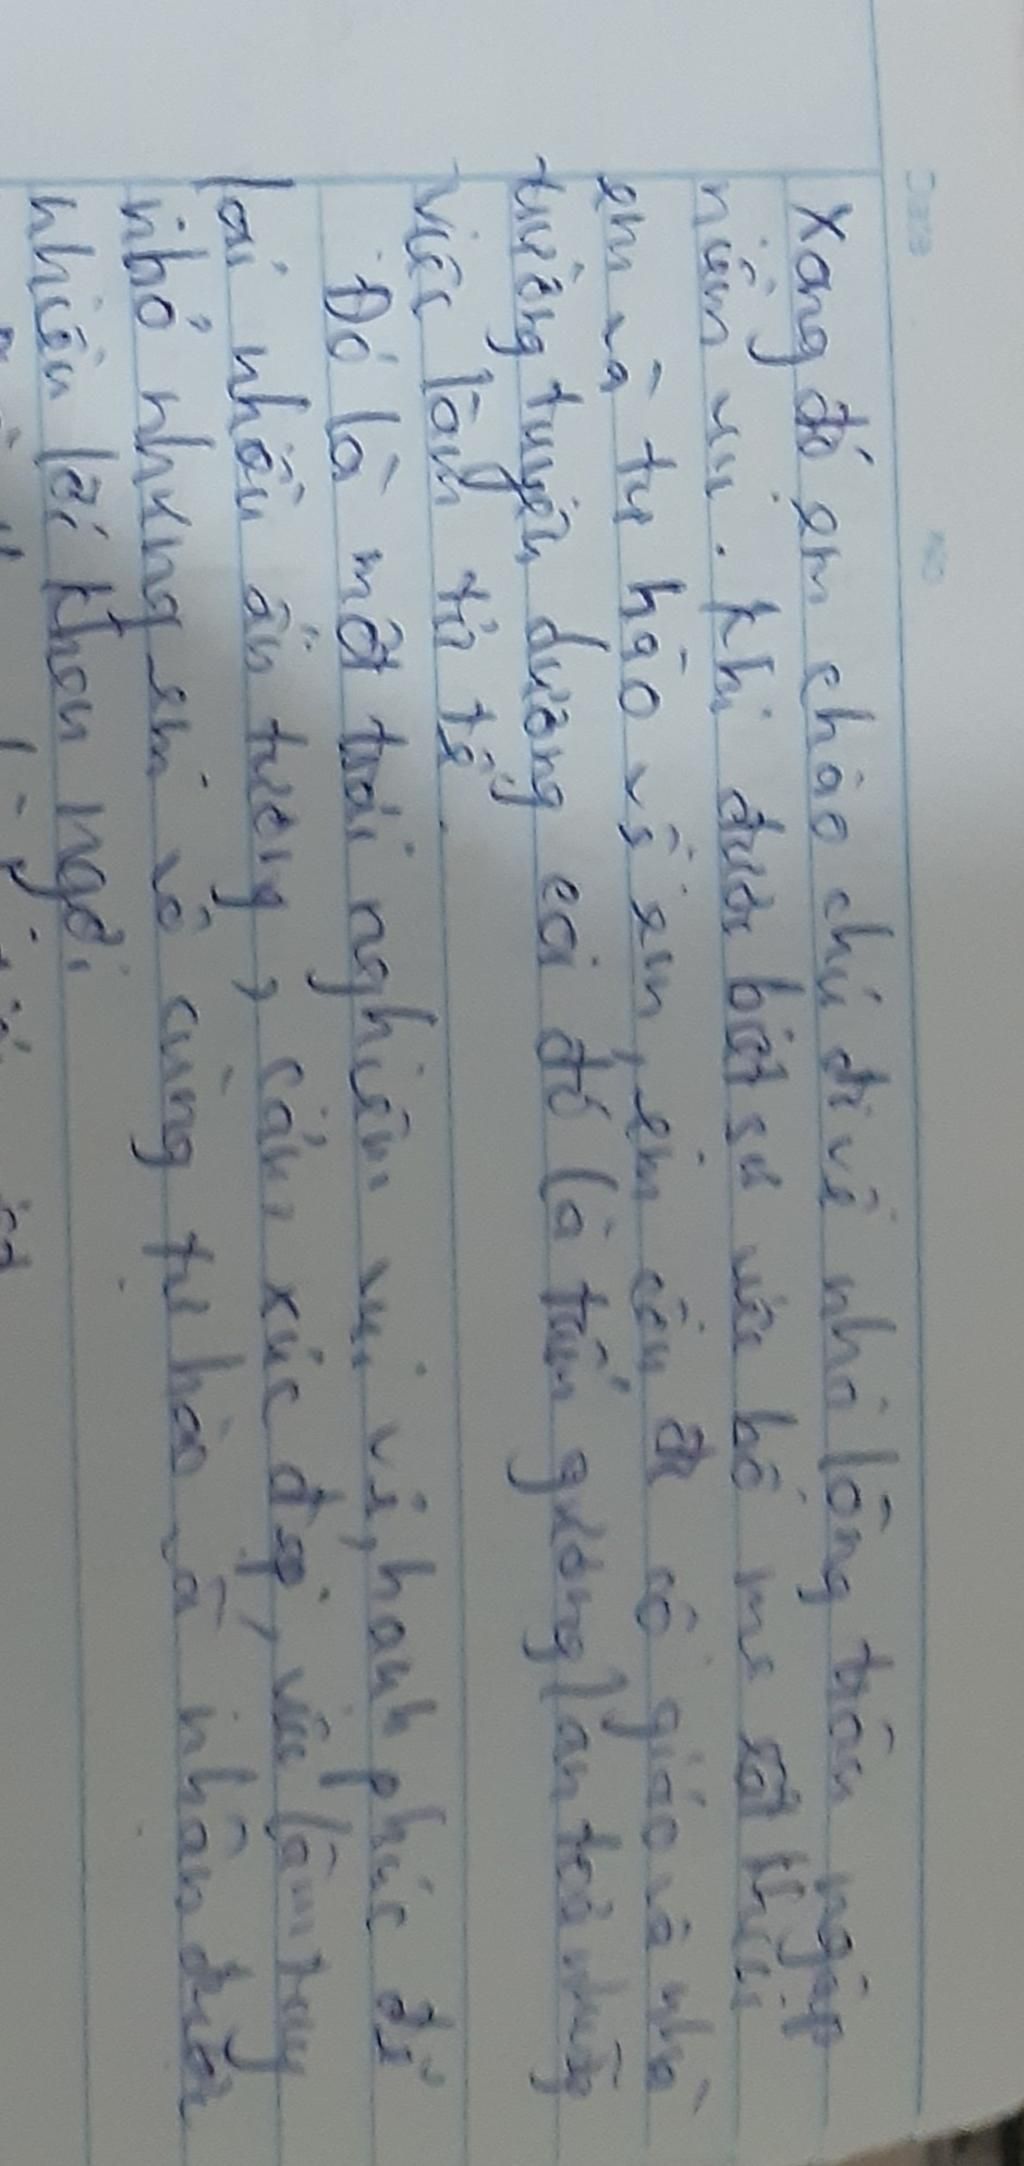 Date No
Xong đó em chào chú đi về nhà lòng tràn ngập
niềm vui. Khi được biết sự việc bố mẹ rất khen
em và tự hào về em, em còn được cô giáo và nhà
trường tuyên dương coi đó là tấm gương lan toả những
việc làm tử tế.
Đó là một trải nghiệm vui vẻ, hạnh phúc để
lại nhiều ấn tượng, cảm xúc đẹp, việc làm tuy
nhỏ nhưng em vô cùng tự hào và nhận được
nhiều lời khen ngợi